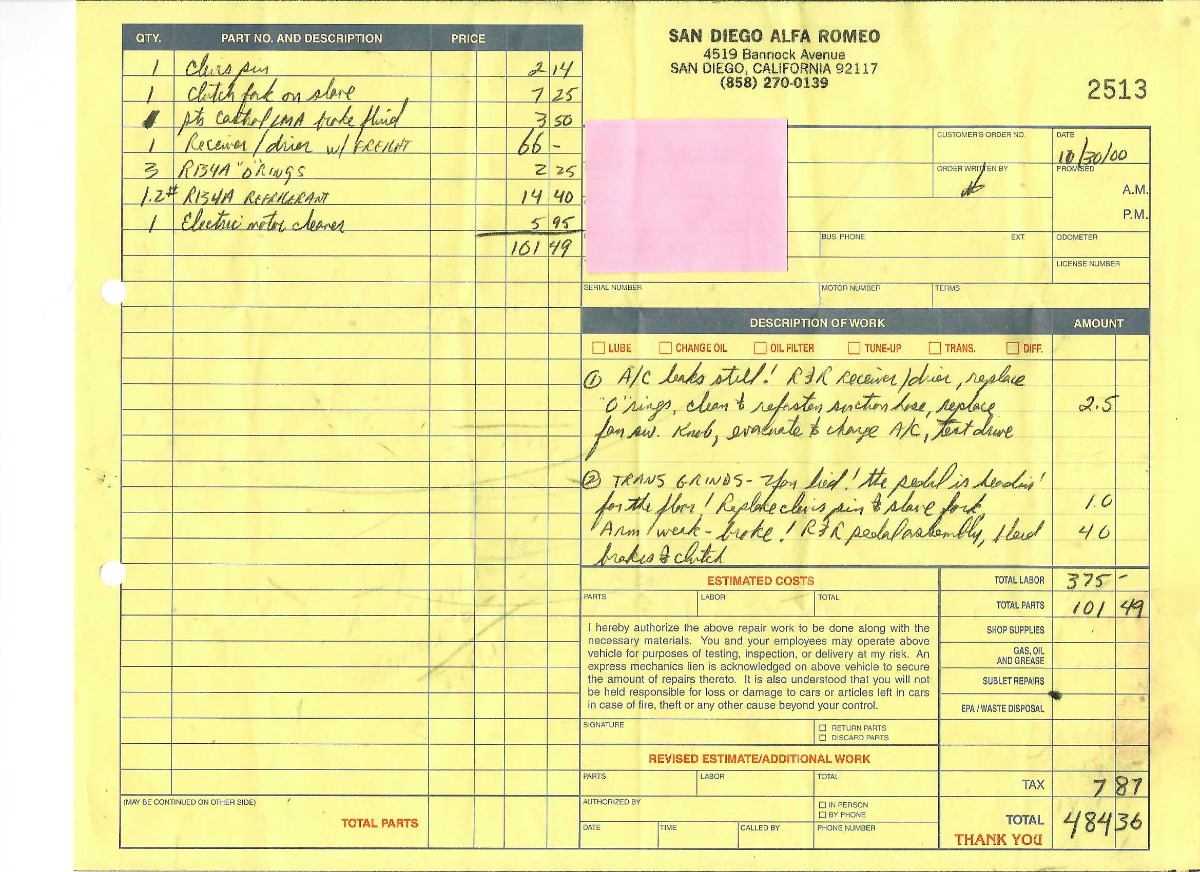 QTY. PART NO. AND DESCRIPTION PRICE
1 Clevis pin 2 14
1 Clutch fork on slave 7 25
pts Castrol LMA brake fluid 3 50
1 Receiver/drier w/ FREIGHT 66 -
3 R134A "O" RINGS 2 25
1.2# R134A REFRIGERANT 14 40
1 Electric motor cleaner 5 95
101 49
(MAY BE CONTINUED ON OTHER SIDE)
TOTAL PARTS
SAN DIEGO ALFA ROMEO
4519 Bannock Avenue
SAN DIEGO, CALIFORNIA 92117
(858) 270-0139
2513
CUSTOMER'S ORDER NO. DATE
10/30/00
ORDER WRITTEN BY PROMISED
A.M.
P.M.
BUS PHONE EXT ODOMETER
LICENSE NUMBER
SERIAL NUMBER MOTOR NUMBER TERMS
DESCRIPTION OF WORK AMOUNT
LUBE CHANGE OIL OIL FILTER TUNE-UP TRANS. DIFF.
① A/C leaks still! R&R Receiver/drier, replace
"O" rings, clean & refasten suction hose, replace 2.5
fan sw. Knob, evacuate & charge A/C, test drive
② TRANS GRINDS - You lied! the pedal is headin'
for the floor! Replace clevis pin & slave fork 1.0
Arm weak - broke! R&R pedal assembly, bleed 4.0
brakes & clutch
ESTIMATED COSTS
PARTS LABOR TOTAL
I hereby authorize the above repair work to be done along with the
necessary materials. You and your employees may operate above
vehicle for purposes of testing, inspection, or delivery at my risk. An
express mechanics lien is acknowledged on above vehicle to secure
the amount of repairs thereto. It is also understood that you will not
be held responsible for loss or damage to cars or articles left in cars
in case of fire, theft or any other cause beyond your control.
SIGNATURE
RETURN PARTS
DISCARD PARTS
REVISED ESTIMATE/ADDITIONAL WORK
PARTS LABOR TOTAL
AUTHORIZED BY
IN PERSON
BY PHONE
DATE TIME CALLED BY PHONE NUMBER
TOTAL LABOR 375 -
TOTAL PARTS 101 49
SHOP SUPPLIES
GAS, OIL
AND GREASE
SUBLET REPAIRS
EPA / WASTE DISPOSAL
TAX 7 87
TOTAL 484 36
THANK YOU